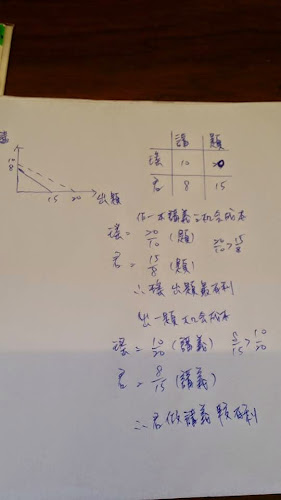 講
10
8
15 20 出題
講 題
環 10 20
君 8 15
做一本講義之机会成本
環 = 20/10 (題) 20/10 > 15/8
君 = 15/8 (題)
∴ 環 出題最有利
出一題之机会成本
環 = 10/20 (講義) 8/15 > 10/20
君 = 8/15 (講義)
∴ 君做講義較有利